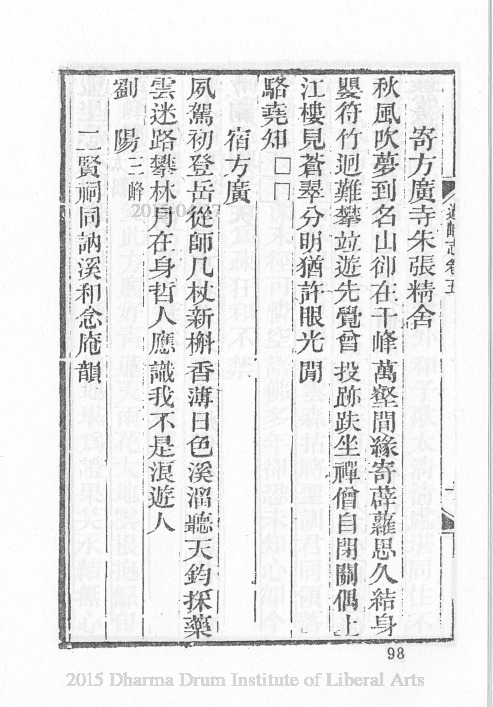 寄方廣寺朱張精舍
秋風吹夢到名山卻在千峰萬壑間緣寄薜蘿思久結身
嬰符竹迥難攀竝遊先覺曾投跡趺坐禪僧自閉關偶上
江樓見蒼翠分明猶許眼光閒
駱堯知□□
宿方廣
夙駕初登岳從師几杖新槲香薄日色溪溜聽天鈞採藥
雲迷路攀林月在身哲人應識我不是浪遊人
劉陽三峰
二賢祠同訥溪和念庵韻
志卷五
98
2015 Dharma Drum Institute of Liberal Arts